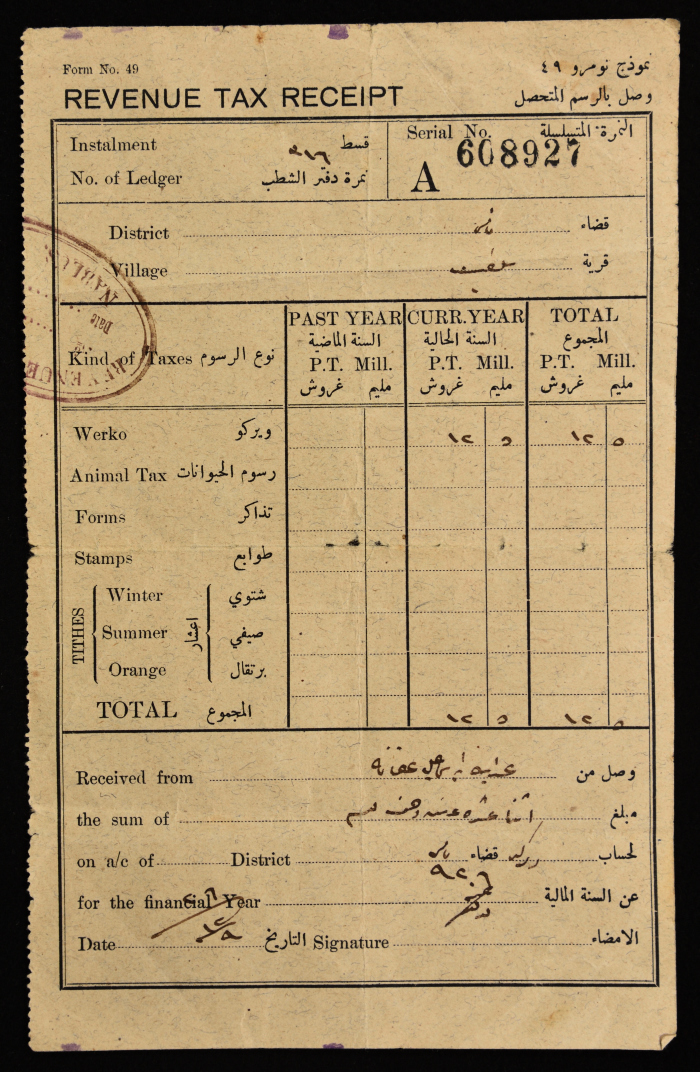 Form No. 49 نموذج نومرو ٤٩
REVENUE TAX RECEIPT وصل بالرسم المتحصل
Instalment قسط
No. of Ledger نمرة دفتر الشطب
Serial No. النمرة المتسلسلة
A 608927
District قضاء
Village قرية
NABLUS
Date
REVENUE
Kind of Taxes نوع الرسوم
PAST YEAR CURR. YEAR TOTAL
السنة الماضية السنة الحالية المجموع
P.T. Mill. P.T. Mill. P.T. Mill.
غروش مليم غروش مليم غروش مليم
Werko ويركو ١٢ ٥ ١٢ ٥
Animal Tax رسوم الحيوانات
Forms تذاكر
Stamps طوابع
TITHES اعشار
Winter شتوي
Summer صيفي
Orange برتقال
TOTAL المجموع ١٢ ٥ ١٢ ٥
Received from وصل من
the sum of مبلغ
on a/c of District قضاء لحساب
for the financial Year عن السنة المالية
Date التاريخ Signature الامضاء